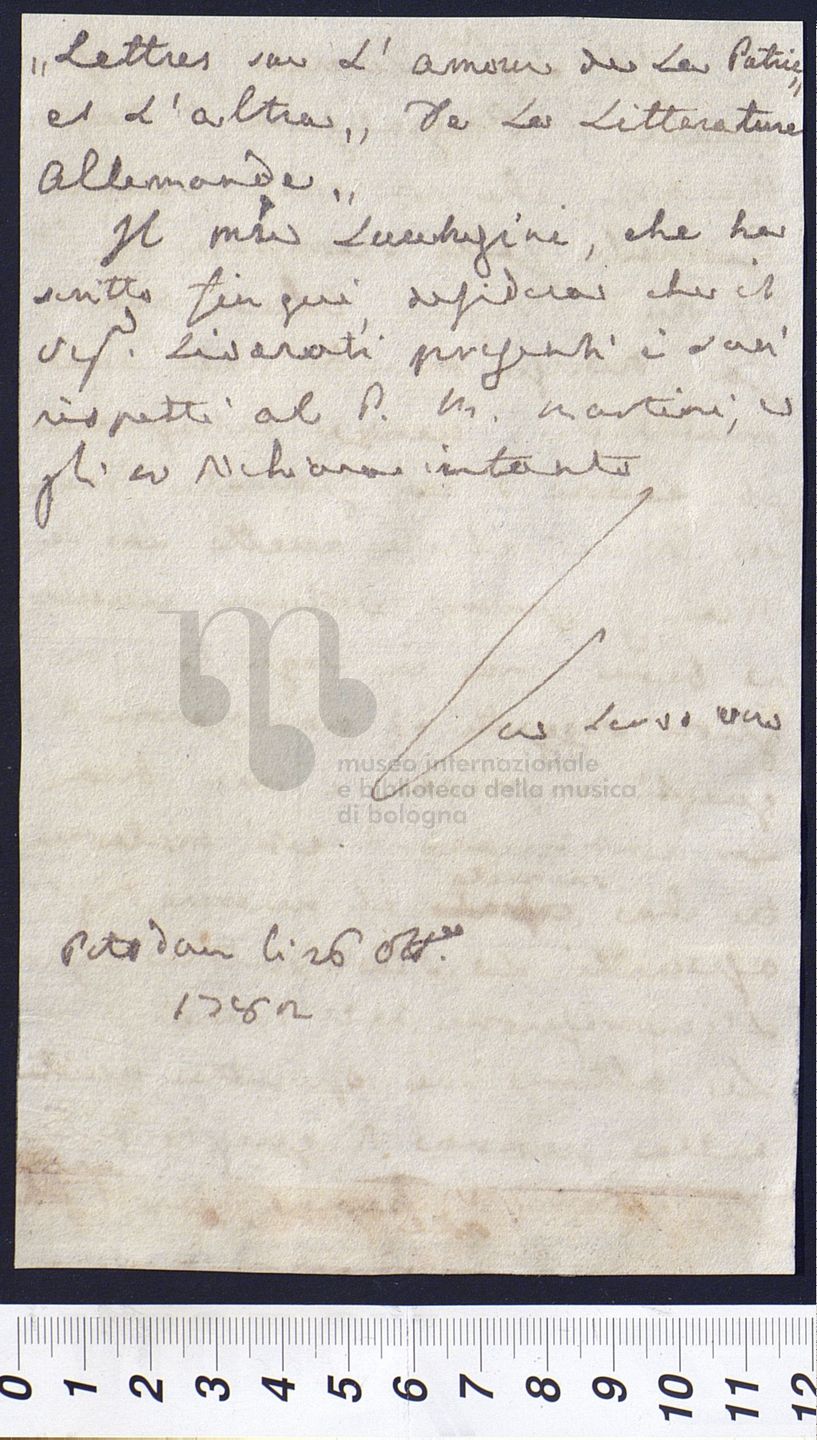 „Lettres sur L' amour de La Patrie„
et L'altra„ De La Litterature
Allemande„
Il mse Lucchesini, che ha
scritto fin qui, desidera che il
Sigr. Liverati presenti i suoi
rispetti al P. M. Martini, e
gli si dichiara intanto
museo internazionale
e biblioteca della musica
di bologna
Potsdam li 26 Ott.re
1782
0 1 2 3 4 5 6 7 8 9 10 11 12